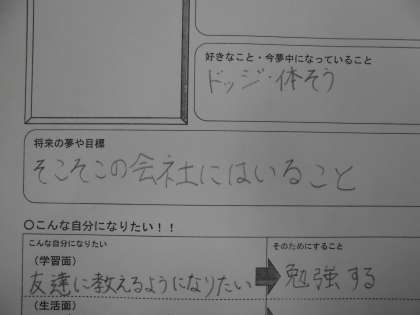 好きなこと・今夢中になっていること
ドッジ・体そう
将来の夢や目標
そこそこの会社にはいること
○こんな自分になりたい!!
こんな自分になりたい
そのためにすること
(学習面)
友達に教えるようになりたい
勉強する
(生活面)